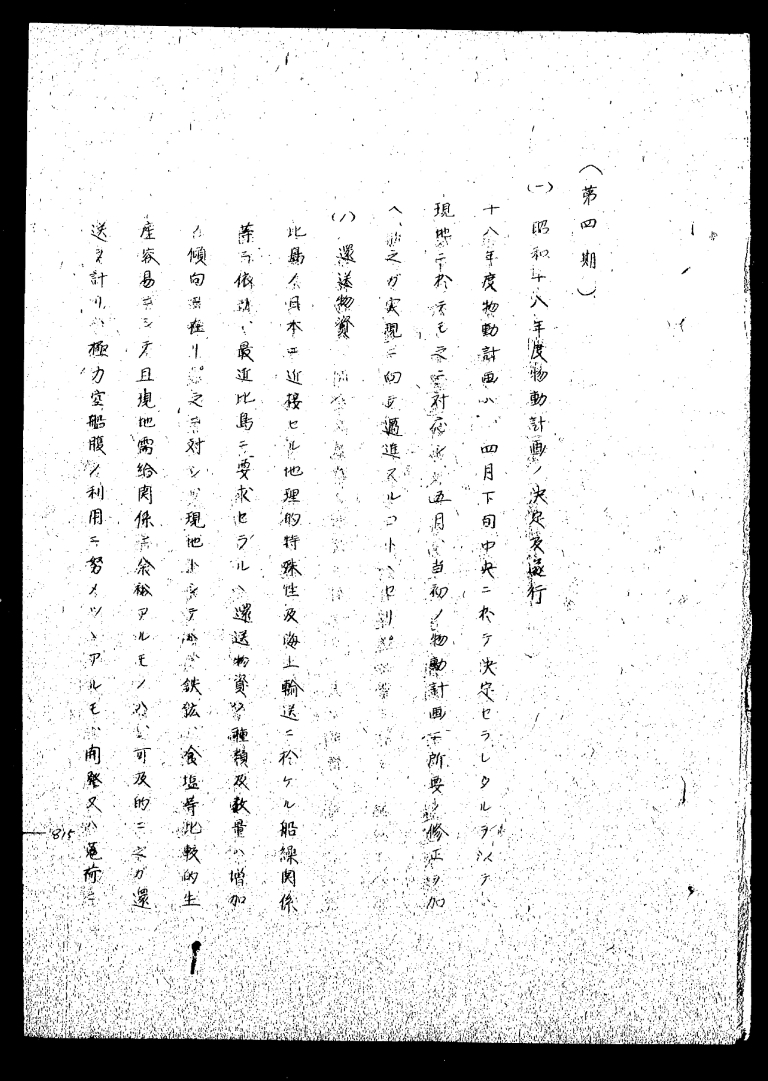 (第四期)
(一) 昭和十八年度物動計画ノ決定及遂行
十八年度物動計画ハ、四月下旬中央ニ於テ決定セラレタルヲ以テ、
現地ニ於テモ之ニ対応シ、五月、当初ノ物動計画ニ所要ノ修正ヲ加
ヘ、之ガ実現ニ向ヒ邁進スルコトヽセリ。
(ハ) 還送物資
比島ハ日本ニ近接セル地理的特殊性及海上輸送ニ於ケル船繰関係
等ニ依リ、最近比島ニ要求セラルヽ還送物資ノ種類及数量ハ増加
ノ傾向ニ在リ。之ニ対シ、現地トシテハ、鉄鉱、食塩等比較的生
産容易ニシテ且現地需給関係ニ余裕アルモノハ、可及的ニ之ガ還
送ヲ計リ、極力空船腹ノ利用ニ努メツヽアルモ、開発又ハ荷ニ
815